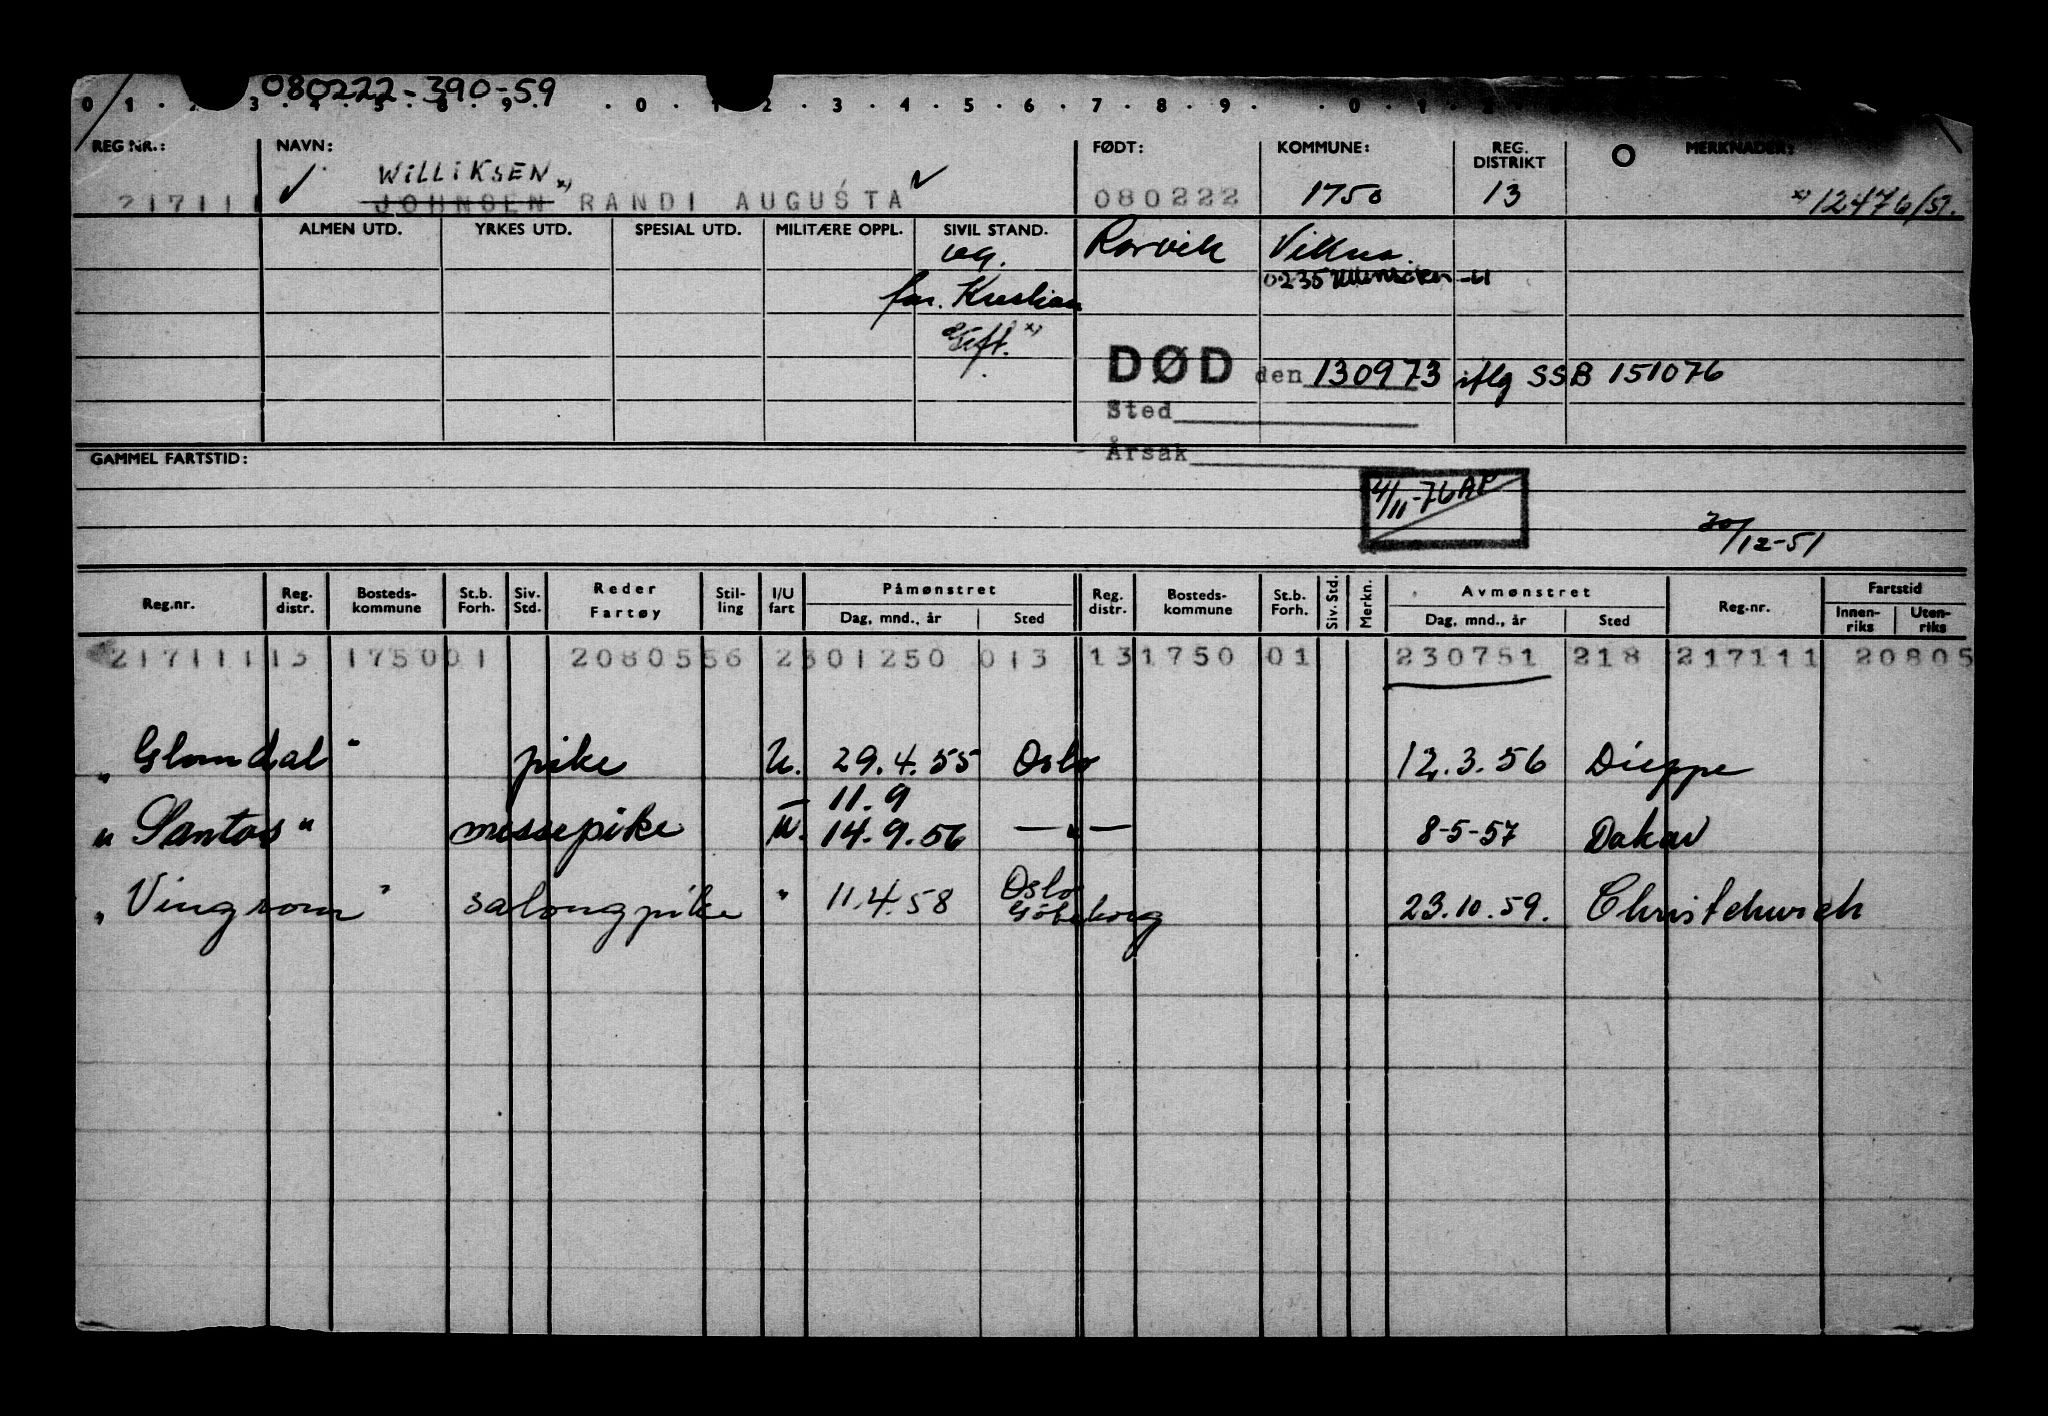 080222-390-59
0 1 . 2 . 3 . 4 . 5 . 6 . 8 . 9 . . 0 . 1 2 . 3 . 4 . 5 . 6 . 7 . 8 . 9 . . 0 . 1
REG NR.: NAVN: FØDT: KOMMUNE: REG. DISTRIKT MERKNADER:
WILLIKSEN x)
217111 JOHNSEN RANDI AUGUSTA 080222 1750 13 x) 12476/51.
ALMEN UTD. YRKES UTD. SPESIAL UTD. MILITÆRE OPPL. SIVIL STAND.
ug. Rørvik Vikna
far. Kristian 0235
Gift. x)
DØD den 130973 iflg SSB 151076
Sted
Årsak
GAMMEL FARTSTID:
4/11-76 AP
20/12-51
Reg.nr. Reg. distr. Bosteds-kommune St.b. Forh. Siv. Std. Reder Fartøy Stilling I/U fart Påmønstret Dag, mnd., år Sted Reg. distr. Bosteds-kommune St.b. Forh. Siv. Std. Merkn. Avmønstret Dag, mnd., år Sted Reg.nr. Fartstid Innen-riks Uten-riks
217111 13 1750 01 2080556 2301250 013 13 1750 01 230751 218 217111 20805
"Glomdal" pike U. 29.4.55 Oslo 12.3.56 Dieppe
11.9
"Santos" messepike U. 14.9.56 — " — 8-5-57 Dakar
"Vingrom" salongpike " 11.4.58 Oslo Göteborg 23.10.59. Christchurch